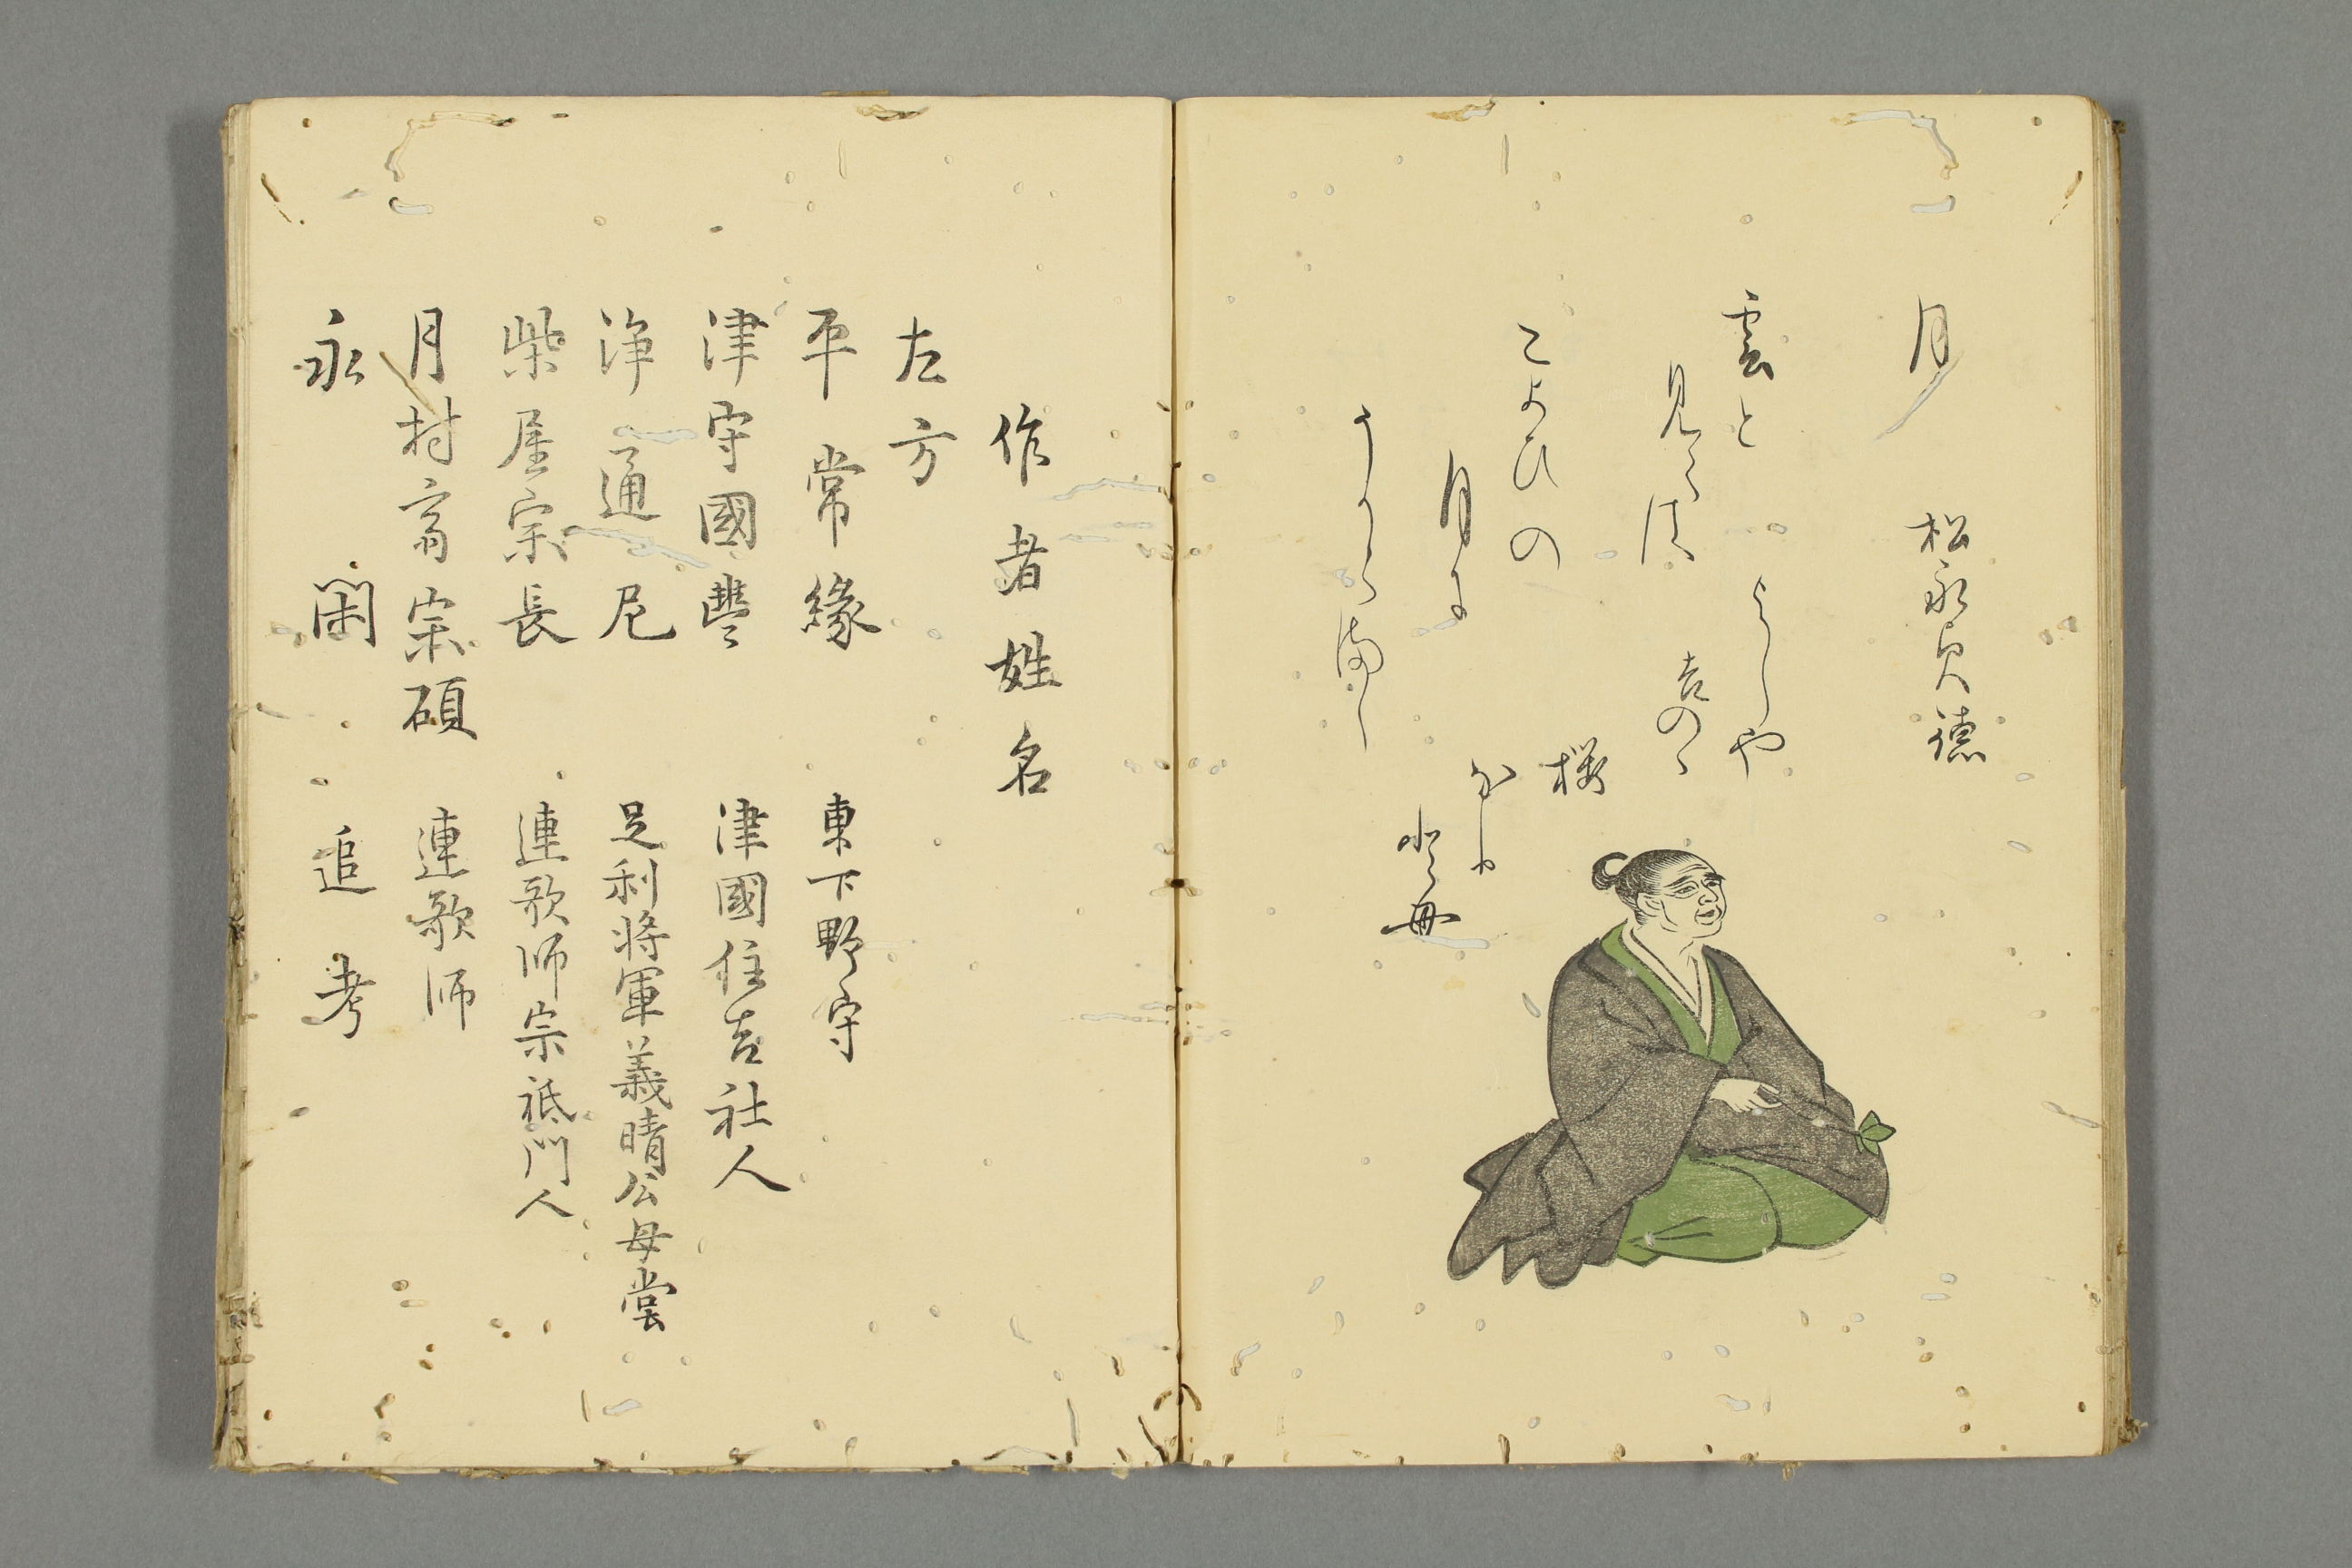 月　松永貞徳
雲と
見えは
こよひの
月に
うからまし
よしや
吉のゝ
桜
なり
とも
作者姓名
左方
平常縁　東下野守
津守國豊　津國住吉社人
浄通尼　足利将軍義晴公母堂
柴屋宗長　連歌師宗祗門人
月村斎宗碩　連歌師
永閑　追考